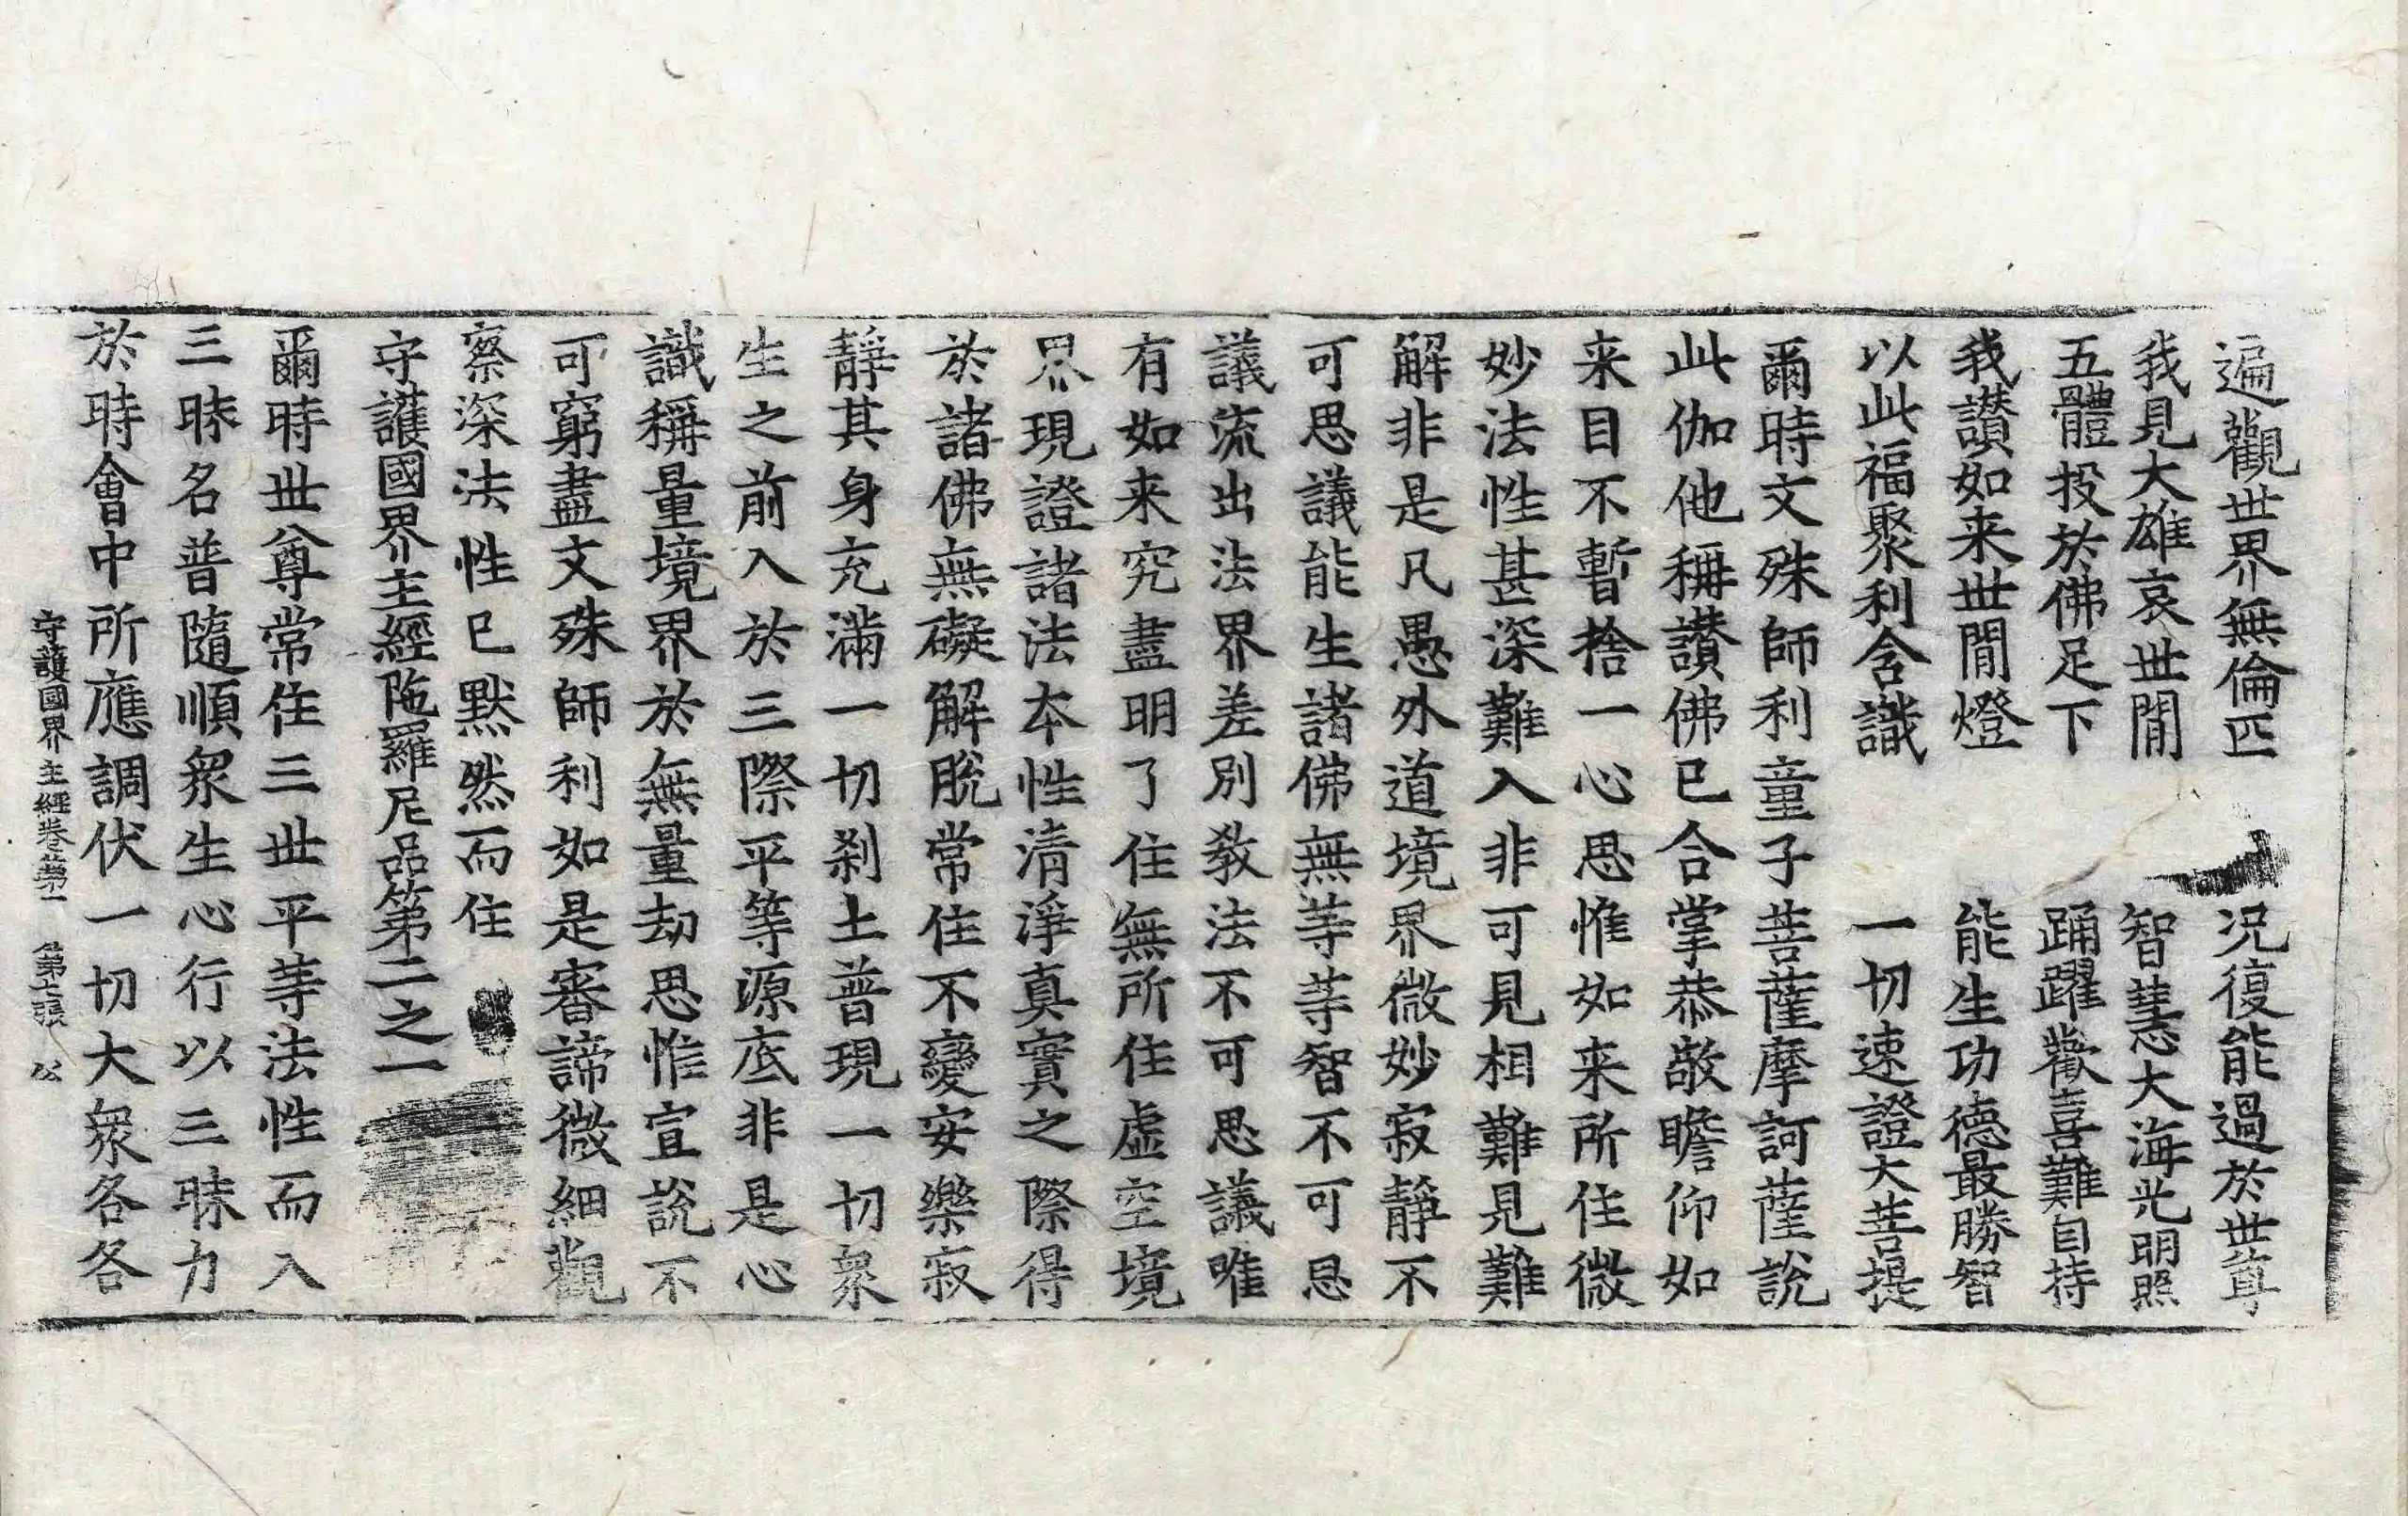 遍觀世界無倫匹　況復能過於世尊
我見大雄哀世閒　智慧大海光明照
五體投於佛足下　踊躍歡喜難自持
我讃如来世閒燈　能生功德最勝智
以此福聚利含識　一切速證大菩提
爾時文殊師利童子菩薩摩訶薩說
此伽他稱讃佛已合掌恭敬瞻仰如
来目不暫捨一心思惟如来所住微
妙法性甚深難入非可見相難見難
解非是凡愚外道境界微妙寂靜不
可思議能生諸佛無等等智不可思
議流出法界差別教法不可思議唯
有如来究盡明了住無所住虛空境
界現證諸法本性清淨真實之際得
於諸佛無礙解脫常住不變安樂寂
靜其身充滿一切刹土普現一切衆
生之前入於三際平等源底非是心
識稱量境界於無量劫思惟宣說不
可窮盡文殊師利如是審諦微細觀
察深法性已默然而住
守護國界主經陁羅尼品第二之一
爾時世尊常住三世平等法性而入
三昧名普隨順衆生心行以三昧力
於時會中所應調伏一切大衆各各
守護國界主經卷第一　第十張　公